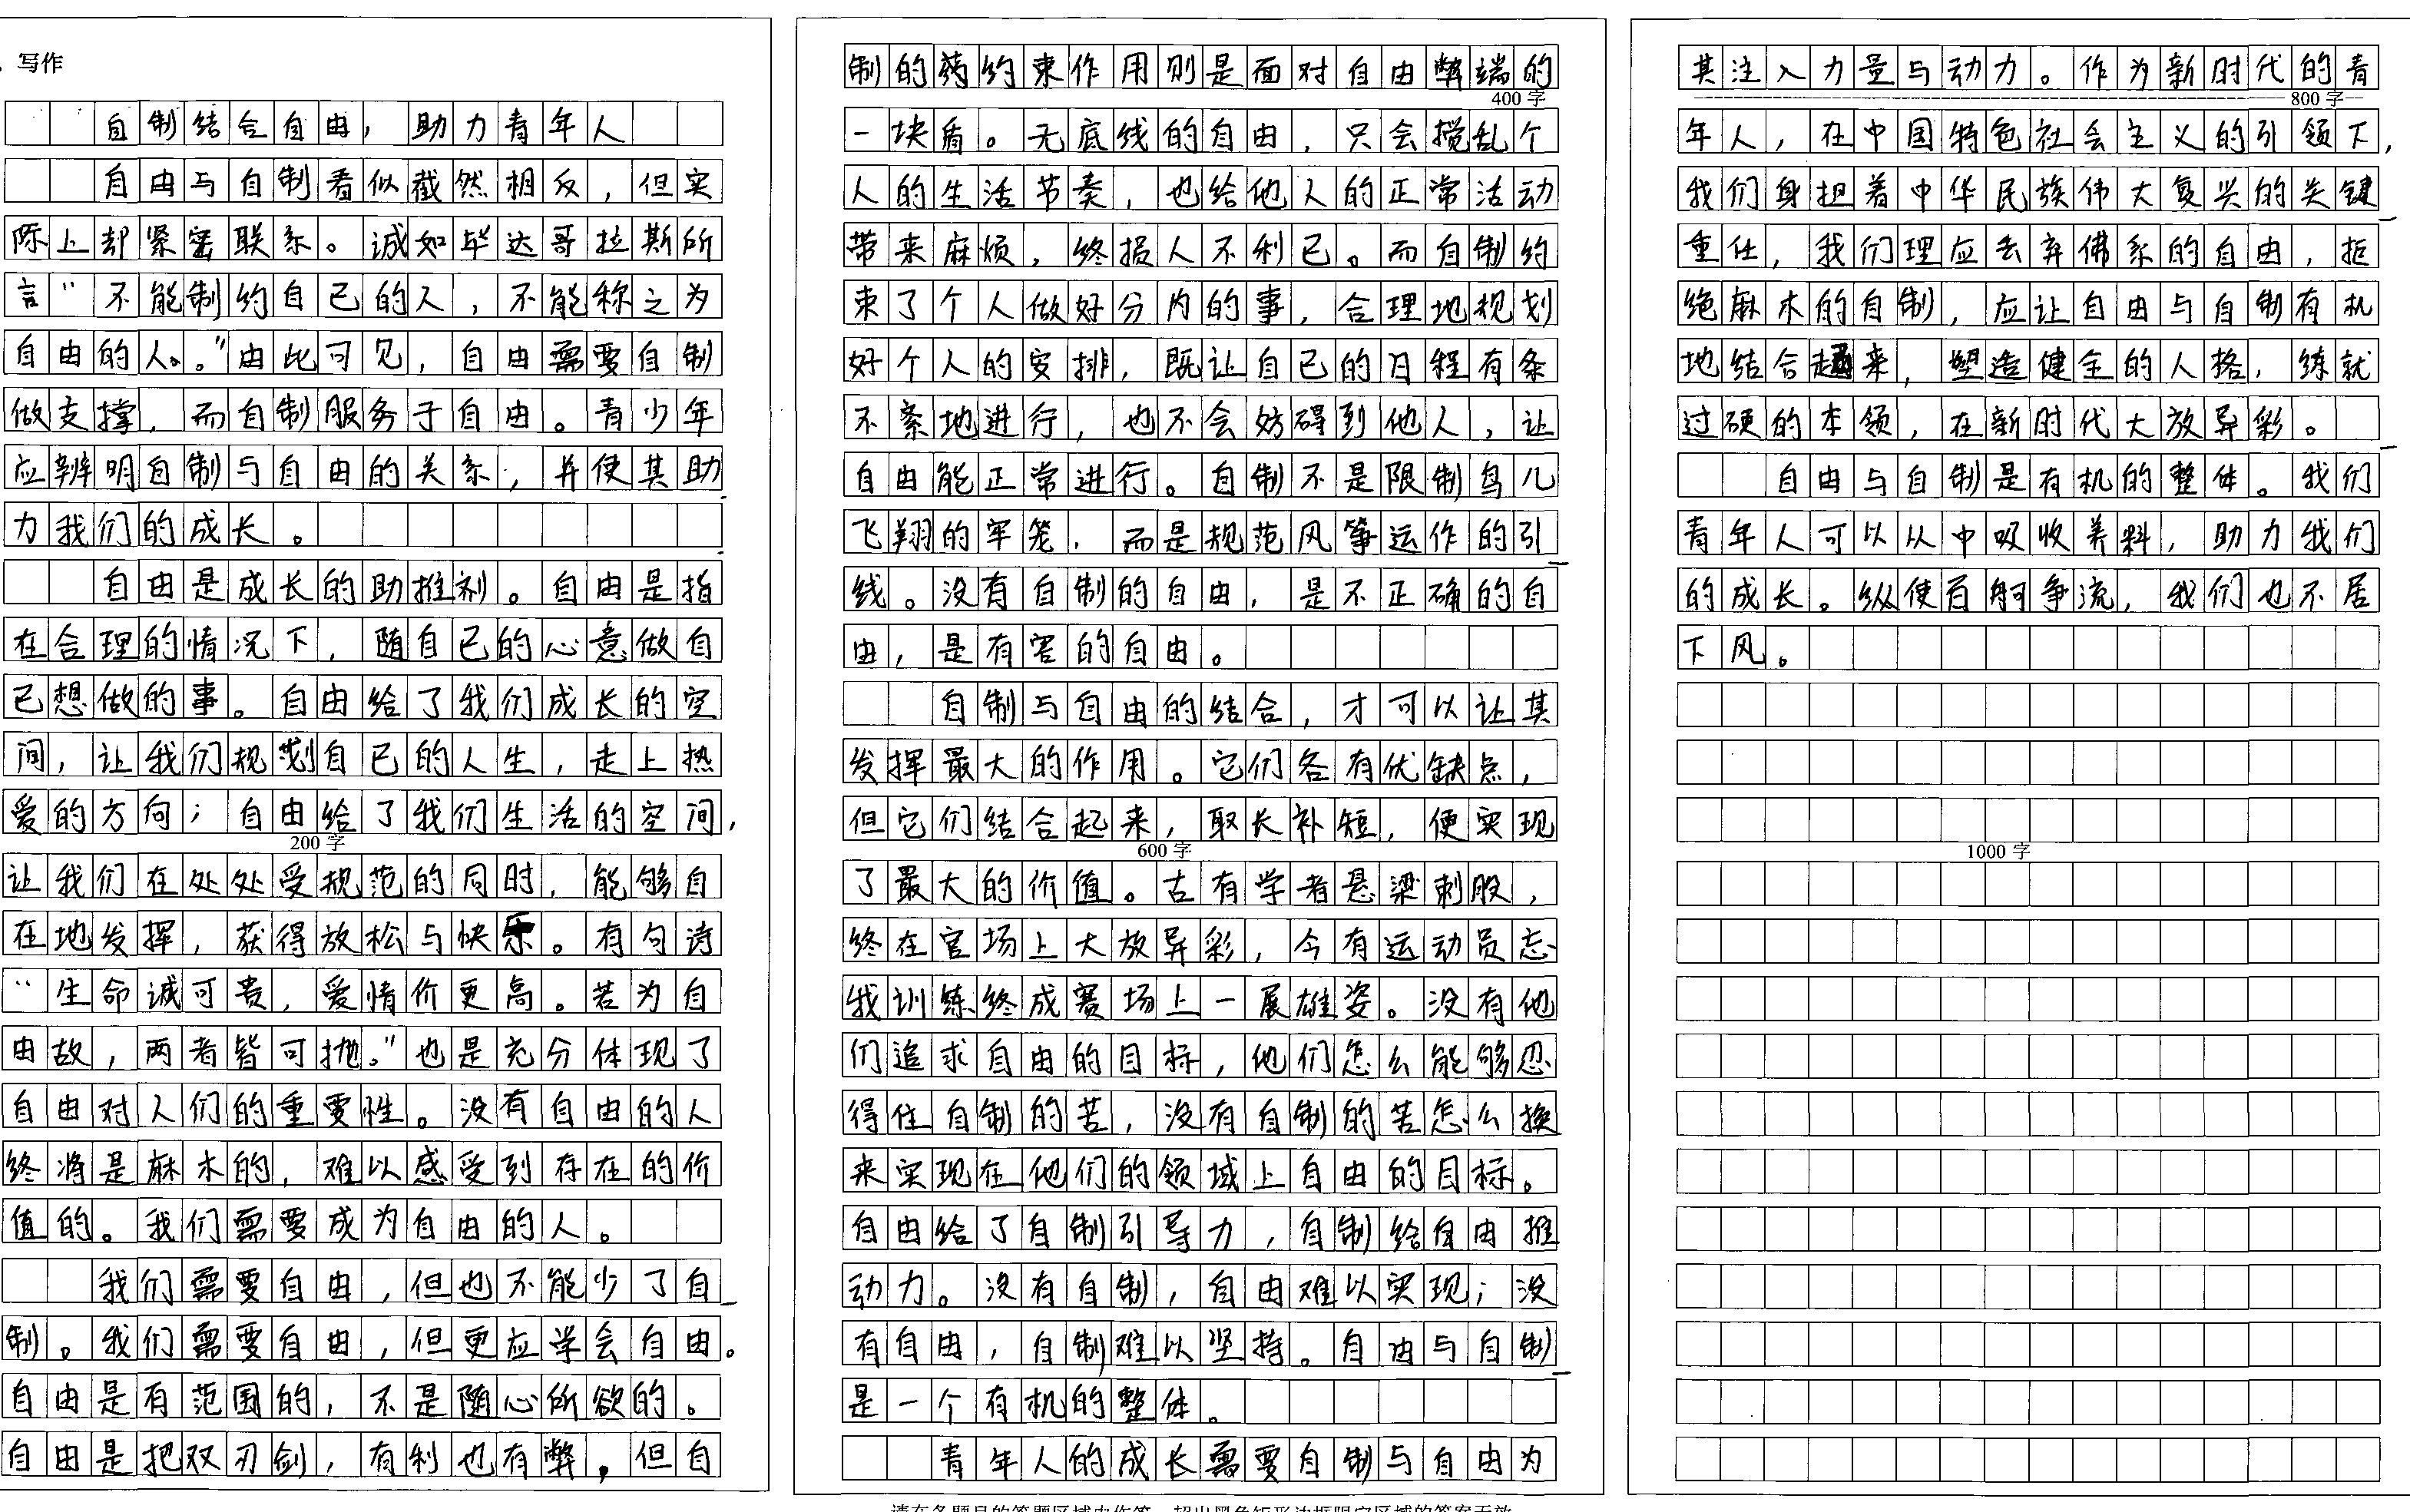 . 写作
自制结合自由，助力青年人
自由与自制看似截然相反，但实
际上却紧密联系。诚如毕达哥拉斯所
言“不能制约自己的人，不能称之为
自由的人。”由此可见，自由需要自制
做支撑，而自制服务于自由。青少年
应辨明自制与自由的关系，并使其助
力我们的成长。
自由是成长的助推剂。自由是指
在合理的情况下，随自己的心意做自
己想做的事。自由给了我们成长的空
间，让我们规划自己的人生，走上热
爱的方向；自由给了我们生活的空间，
200字
让我们在处处受规范的同时，能够自
在地发挥，获得放松与快乐。有句诗
“生命诚可贵，爱情价更高。若为自
由故，两者皆可抛。”也是充分体现了
自由对人们的重要性。没有自由的人
终将是麻木的，难以感受到存在的价
值的。我们需要成为自由的人。
我们需要自由，但也不能少了自
制。我们需要自由，但更应学会自由。
自由是有范围的，不是随心所欲的。
自由是把双刃剑，有利也有弊，但自
制的约束作用则是面对自由弊端的
400字
一块盾。无底线的自由，只会搅乱个
人的生活节奏，也给他人的正常活动
带来麻烦，终损人不利己。而自制约
束了个人做好分内的事，合理地规划
好个人的安排，既让自己的日程有条
不紊地进行，也不会妨碍到他人，让
自由能正常进行。自制不是限制鸟儿
飞翔的牢笼，而是规范风筝运作的引
线。没有自制的自由，是不正确的自
由，是有害的自由。
自制与自由的结合，才可以让其
发挥最大的作用。它们各有优缺点，
但它们结合起来，取长补短，便实现
600字
了最大的价值。古有学者悬梁刺股，
终在官场上大放异彩，今有运动员忘
我训练终成赛场上一展雄姿。没有他
们追求自由的目标，他们怎么能够忍
得住自制的苦，没有自制的苦怎么换
来实现在他们的领域上自由的目标。
自由给了自制引导力，自制给自由推
动力。没有自制，自由难以实现；没
有自由，自制难以坚持。自由与自制
是一个有机的整体。
青年人的成长需要自制与自由为
其注入力量与动力。作为新时代的青
800字
年人，在中国特色社会主义的引领下，
我们身担着中华民族伟大复兴的关键
重任，我们理应丢弃佛系的自由，拒
绝麻木的自制，应让自由与自制有机
地结合起来，塑造健全的人格，练就
过硬的本领，在新时代大放异彩。
自由与自制是有机的整体。我们
青年人可以从中吸收养料，助力我们
的成长。纵使百舸争流，我们也不居
下风。
1000字